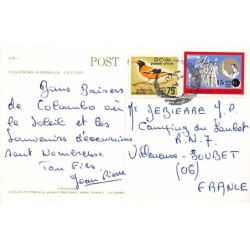 POST
COLOMBO HARBOUR, CEYLON
Bons Baisers
de Colombo où
le Soleil et les
Souvenirs d'excursions
sont Nombreux
Ton Fils
Jean Pierre
75
15
Mr JEZIERRE J.P
Camping du Loubet
R.N.7
Villeneuve-LOUBET
(06)
FRANCE